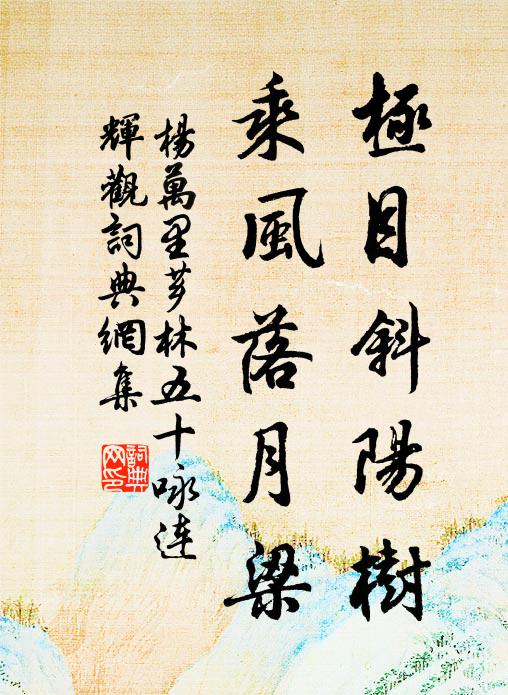 極目斜陽樹
乘風落月梁
楊萬里芗林五十咏連
輝觀詞典網集
詞典
网印